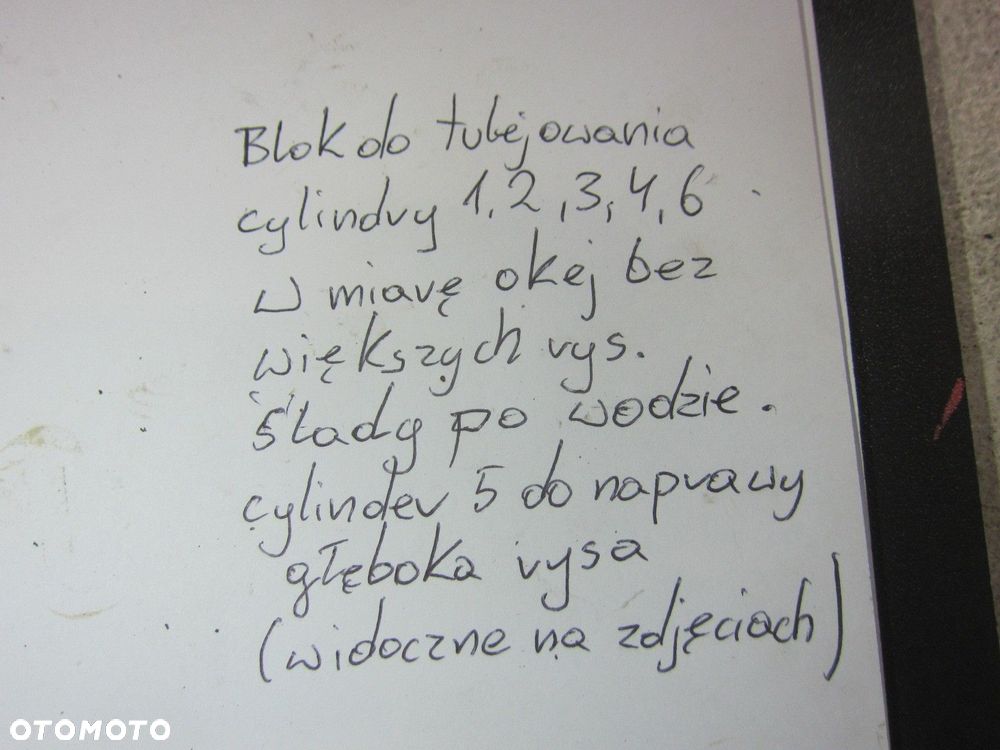 Blok do tulejowania
cylindry 1, 2, 3, 4, 6
w miarę okej bez
większych rys.
ślady po wodzie.
cylinder 5 do naprawy
głęboka rysa
(widoczne na zdjęciach)
OTOMOTO